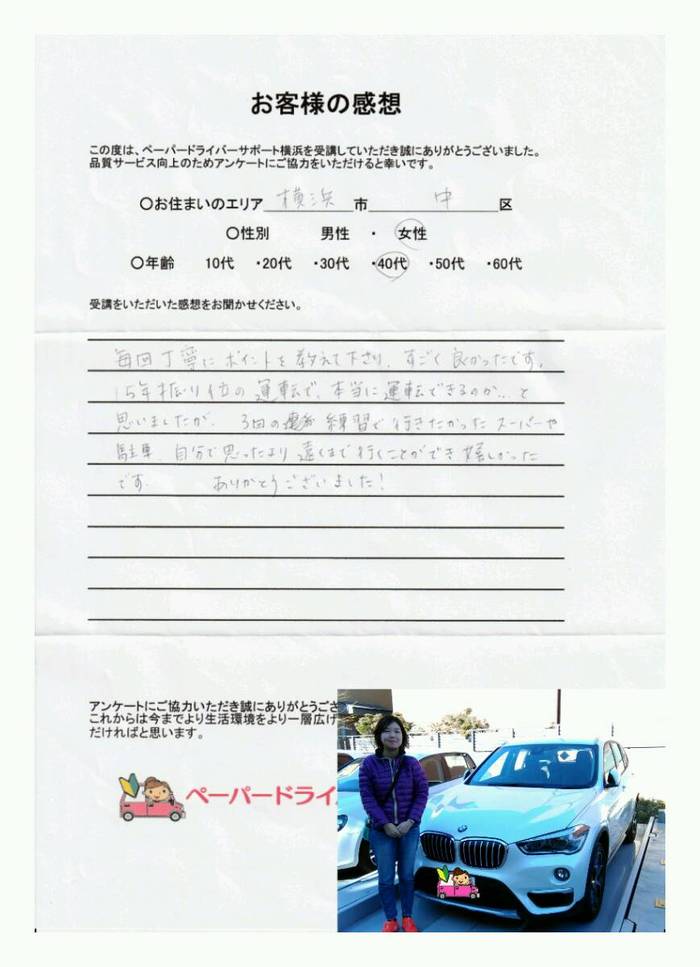 お客様の感想
この度は、ペーパードライバーサポート横浜を受講していただき誠にありがとうございました。
品質サービス向上のためアンケートにご協力をいただけると幸いです。
〇お住まいのエリア 横浜 市 中 区
〇性別 男性 ・ 女性
〇年齢 10代 ・20代 ・30代 ・40代 ・50代 ・60代
受講をいただいた感想をお聞かせください。
毎回丁寧にポイントを教えて下さり、すごく良かったです。
15年振り位の運転で、本当に運転できるのか…と
思いましたが、3回の練習で行きたかったスーパーや
駐車、自分で思ったより遠くまで行くことができ嬉しかった
です。 ありがとうございました!
アンケートにご協力いただき誠にありがとうござ
これからは今までより生活環境をより一層広げ
だければと思います。
ペーパードライ